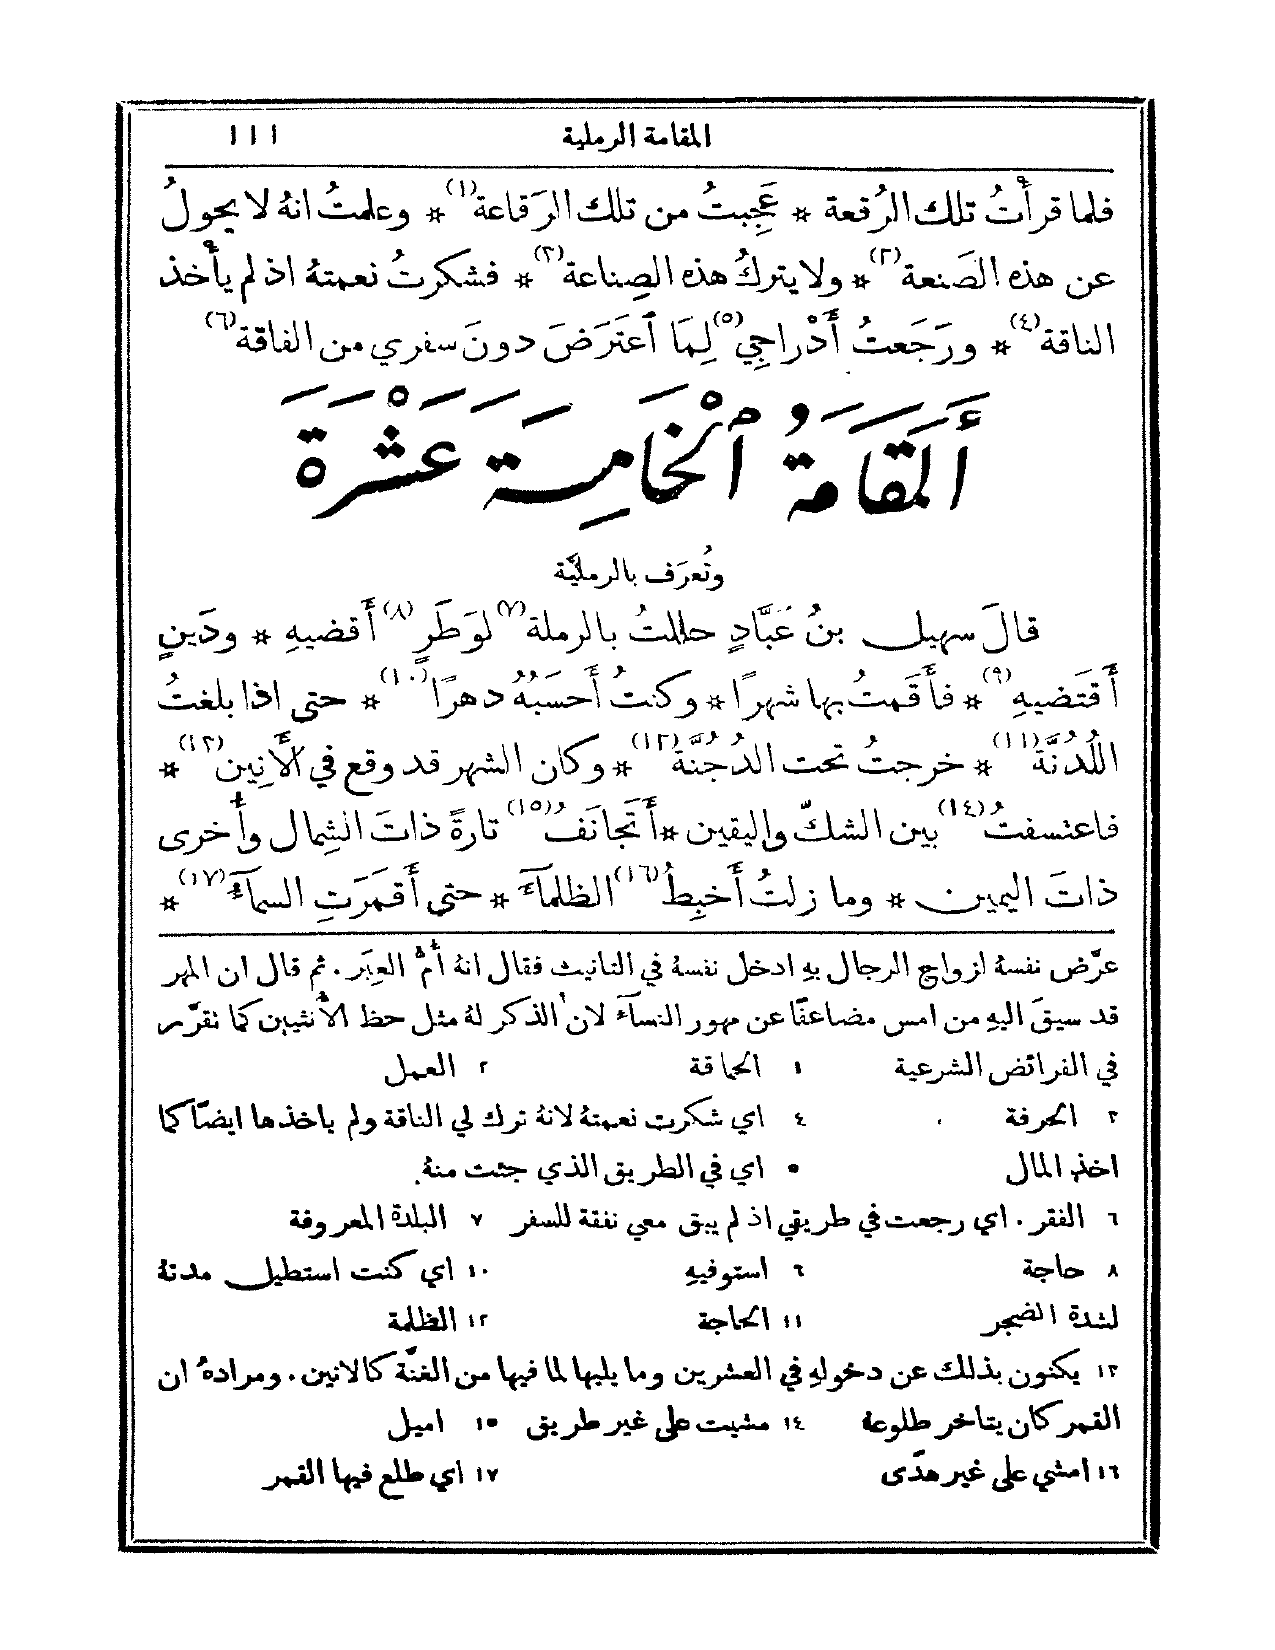 المقامة الرملية ١١١
فلما قرأْتُ تلك الرُقعة * عَجِبتُ من تلك الرَقاعة(١) * وعلمتُ انهُ لا يحولُ
عن هذه الصَنعة(٢) * ولا يتركُ هذه الصِناعة(٣) * فشكرتُ نعمتهُ اذ لم يأْخذ
الناقة(٤) * ورَجَعتُ أَدْراجي(٥) لِمَا ٱعتَرَضَ دونَ سفري من الفاقة(٦)
أَلْمَقَامَةُ ٱلْخَامِسَةَ عَشْرَةَ
وتُعرَف بالرمليَّة
قالَ سهيل بنُ عَبَّادٍ حللتُ بالرملة(٧) لوَطَرٍ(٨) أَقضيهِ * ودَينٍ
أَقتَضيهِ(٩) * فأَقمتُ بها شهرًا * وكنتُ أَحسَبُهُ دهرًا(١٠) * حتى اذا بلغتُ
اللُدُنَّةَ(١١) * خرجتُ تحت الدُجُنَّة(١٢) * وكان الشهر قد وقع في الأَنِين(١٣) *
فاعتسفتُ(١٤) بين الشكّ واليقين * أَتجانَفُ(١٥) تارةً ذاتَ الشِمال وأُخرى
ذاتَ اليمين * وما زلتُ أَخبِطُ(١٦) الظلمآءَ * حتى أَقمَرَتِ السمآءُ(١٧) *
عرَّض نفسهُ لزواج الرجال بهِ ادخل نفسهُ في التانيث فقال انهُ أُمُّ العِبَر . ثم قال ان المهر
قد سيقَ اليهِ من امس مضاعفًا عن مهور النسآء لان الذكر لهُ مثل حظ الأُنثيين كما تقرَّر
في الفرائض الشرعية ١ الحماقة ٢ العمل
٣ الحرفة ٤ اي شكرت نعمتهُ لانهُ ترك لي الناقة ولم ياخذها ايضًا كما
اخذ المال ٥ اي في الطريق الذي جئت منهُ
٦ الفقر . اي رجعت في طريقي اذ لم يبق معي نفقة للسفر ٧ البلدة المعروفة
٨ حاجة ٩ استوفيهِ ١٠ اي كنت استطيل مدتهُ
لشدة الضجر ١١ الحاجة ١٢ الظلمة
١٣ يكنون بذلك عن دخولهِ في العشرين وما يليها لما فيها من الغنَّة كالانين . ومرادهُ ان
القمر كان يتاخر طلوعهُ ١٤ مشيت على غير طريق ١٥ اميل
١٦ امشي على غير هدًى ١٧ اي طلع فيها القمر